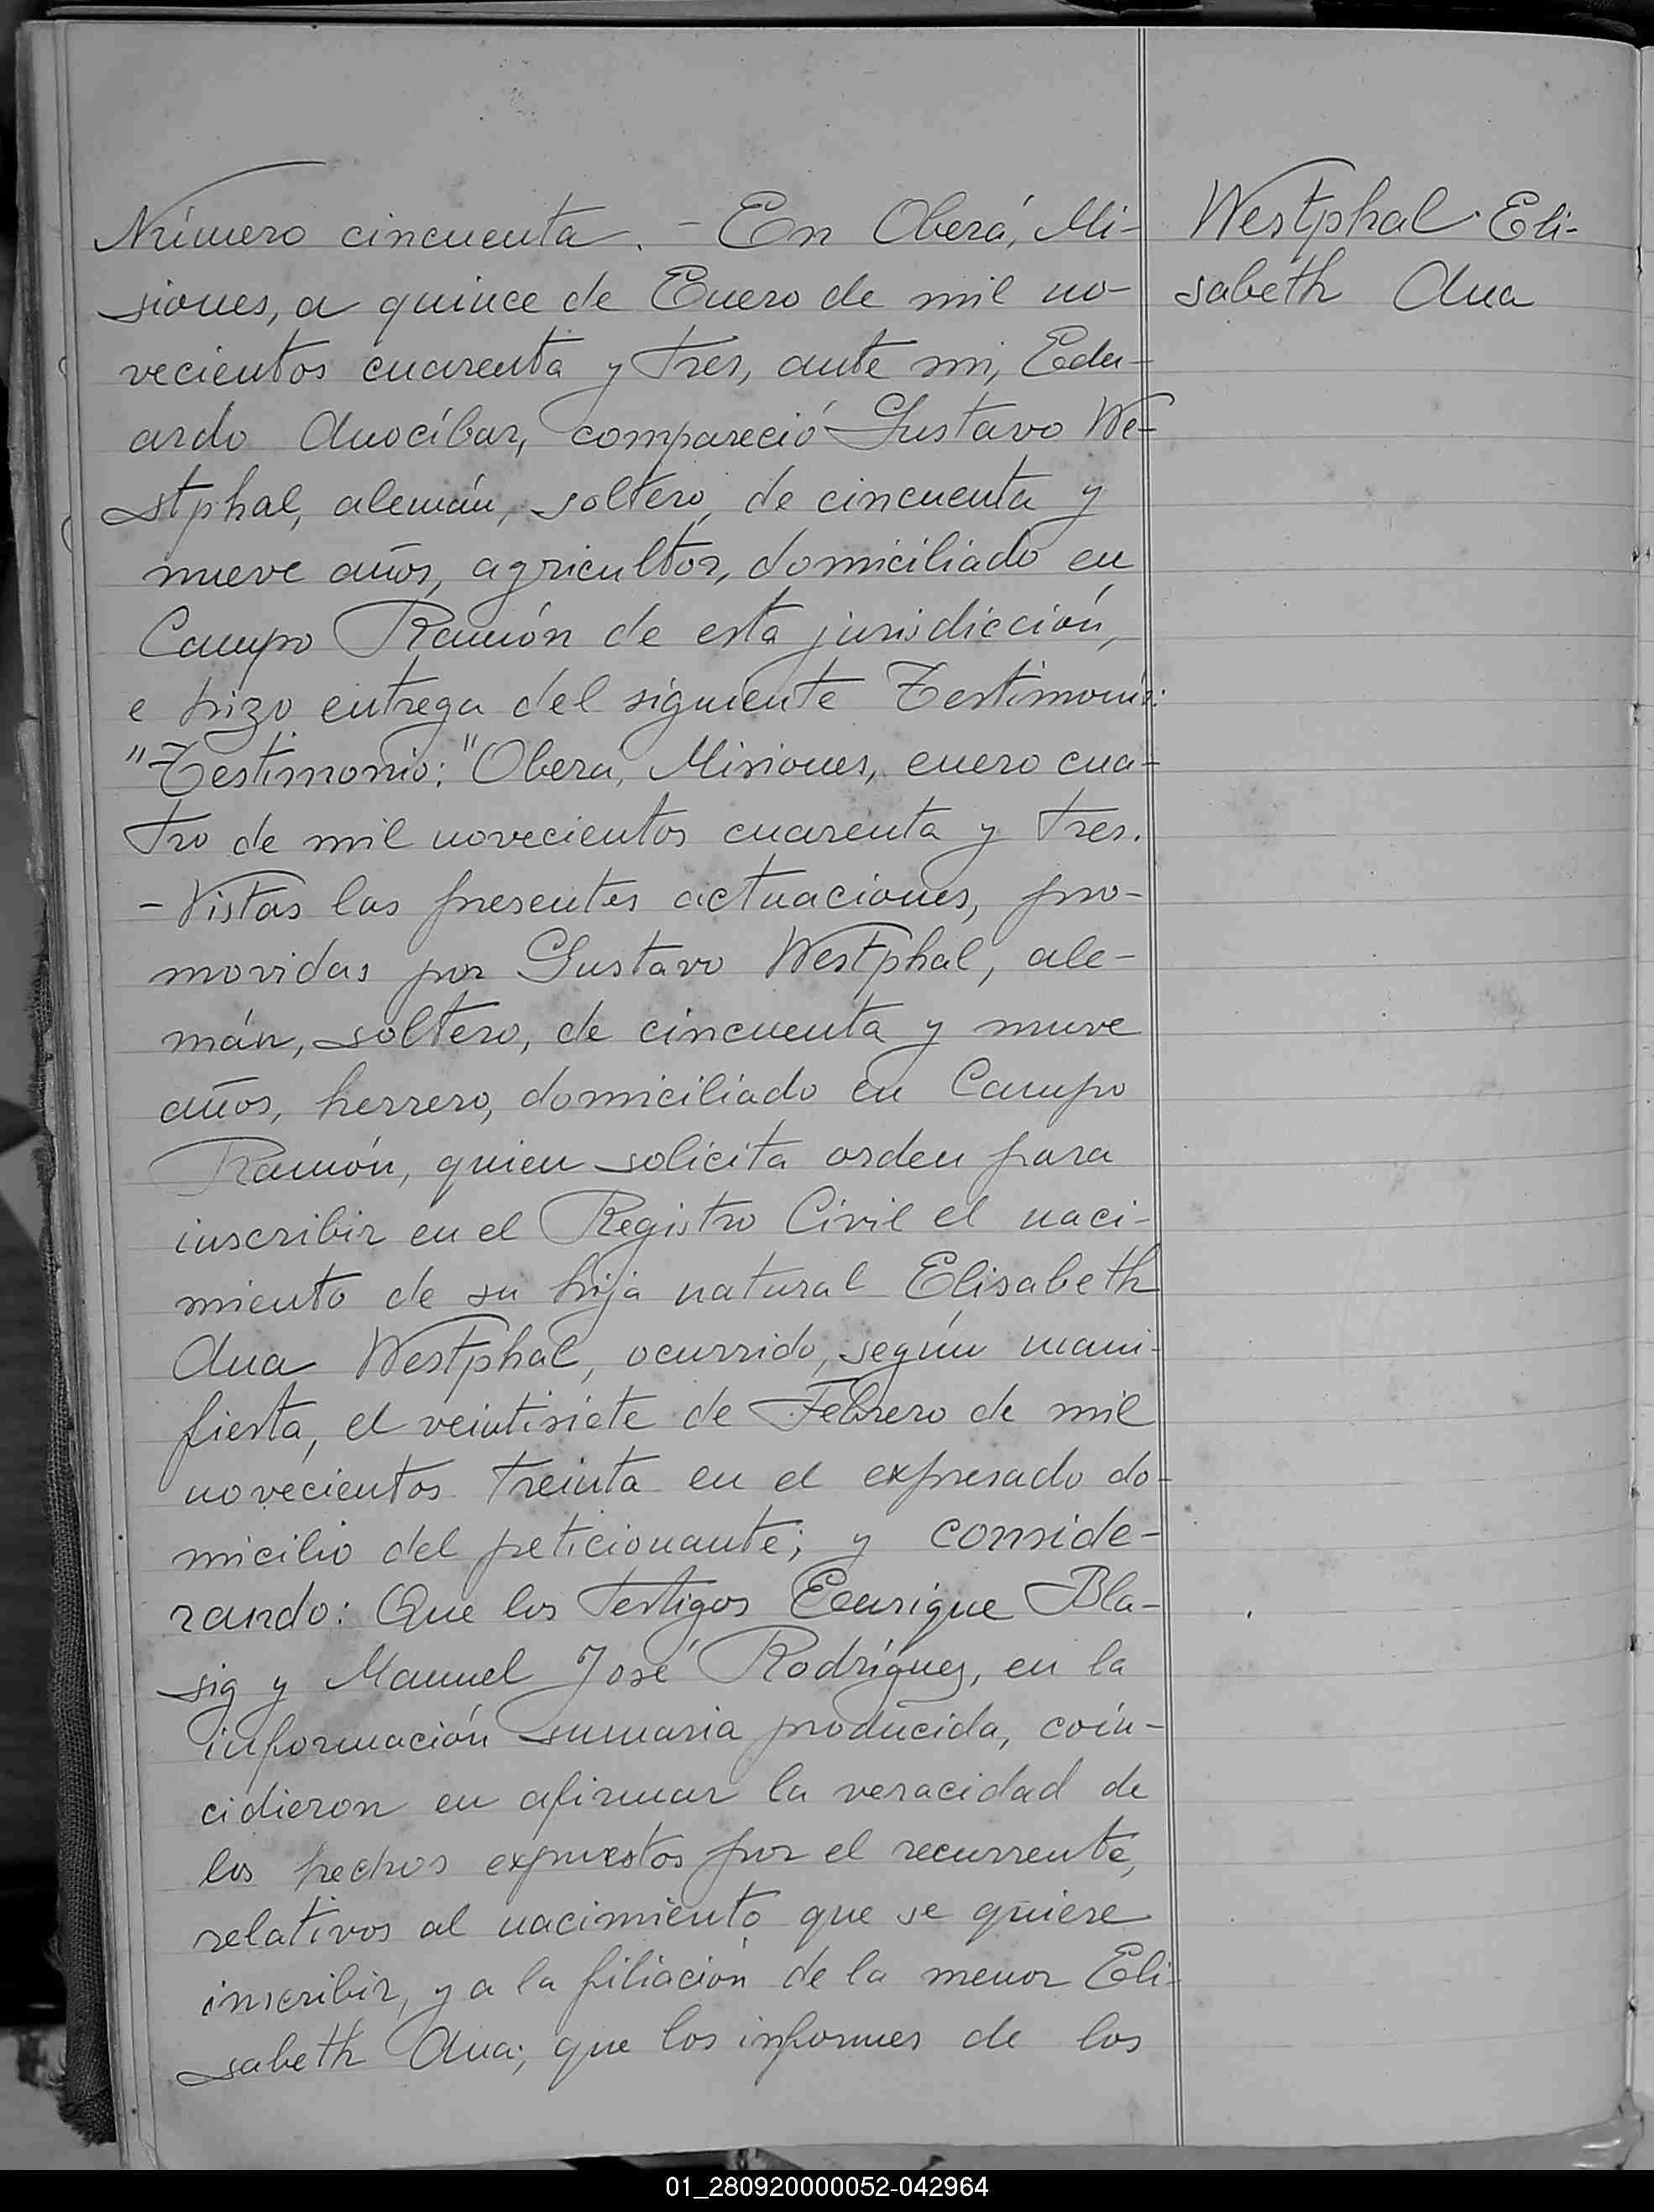 Número cincuenta. - En Oberá, Mi-
siones, a quince de Enero de mil no-
vecientos cuarenta y tres, ante mi, Edu-
ardo Anocíbar, compareció Gustavo We-
stphal, alemán, soltero, de cincuenta y
nueve años, agricultor, domiciliado en
Campo Ramón de esta jurisdicción,
e hizo entrega del siguiente Testimonio:
"Testimonio:" Oberá, Misiones, enero cua-
tro de mil novecientos cuarenta y tres.
- Vistas las presentes actuaciones, pro-
movidas por Gustavo Westphal, ale-
mán, soltero, de cincuenta y nueve
años, herrero, domiciliado en Campo
Ramón, quien solicita orden para
inscribir en el Registro Civil el naci-
miento de su hija natural Elisabeth
Ana Westphal, ocurrido, según mani-
fiesta, el veintisiete de Febrero de mil
novecientos treinta en el expresado do-
micilio del peticionante; y conside-
rando: Que los testigos Enrique Bla-
sig y Manuel José Rodríguez, en la
información sumaria producida, coin-
cidieron en afirmar la veracidad de
los hechos expuestos por el recurrente,
relativos al nacimiento que se quiere
inscribir, y a la filiación de la menor Eli-
sabeth Ana; que los informes de los
Westphal Eli-
sabeth Ana
01_280920000052-042964